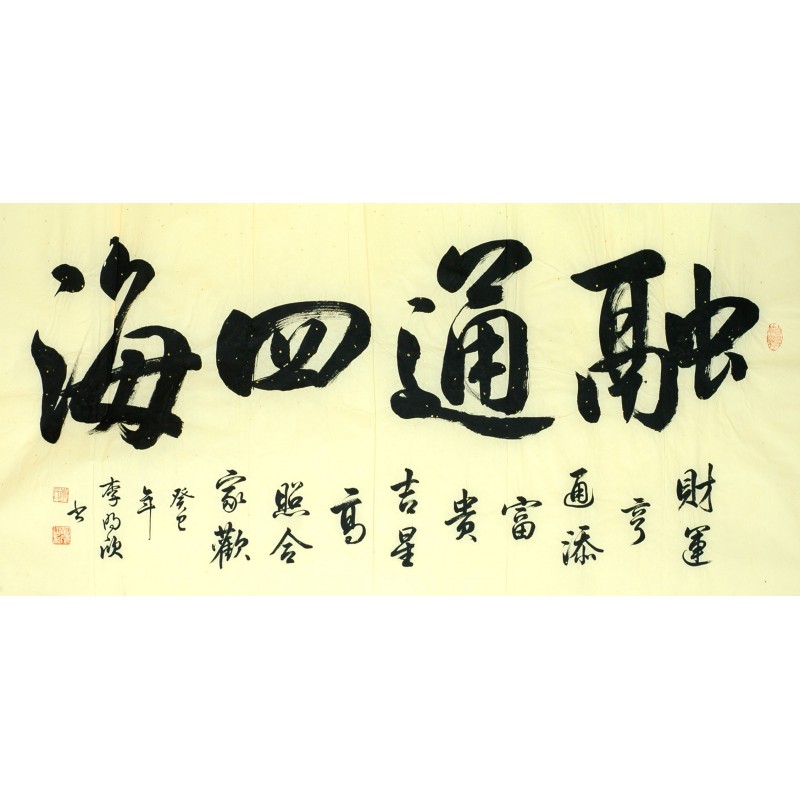 融通四海
財運
亨
通添
富
貴
吉星
高
照合
家歡
癸巳
年
李明欣
书